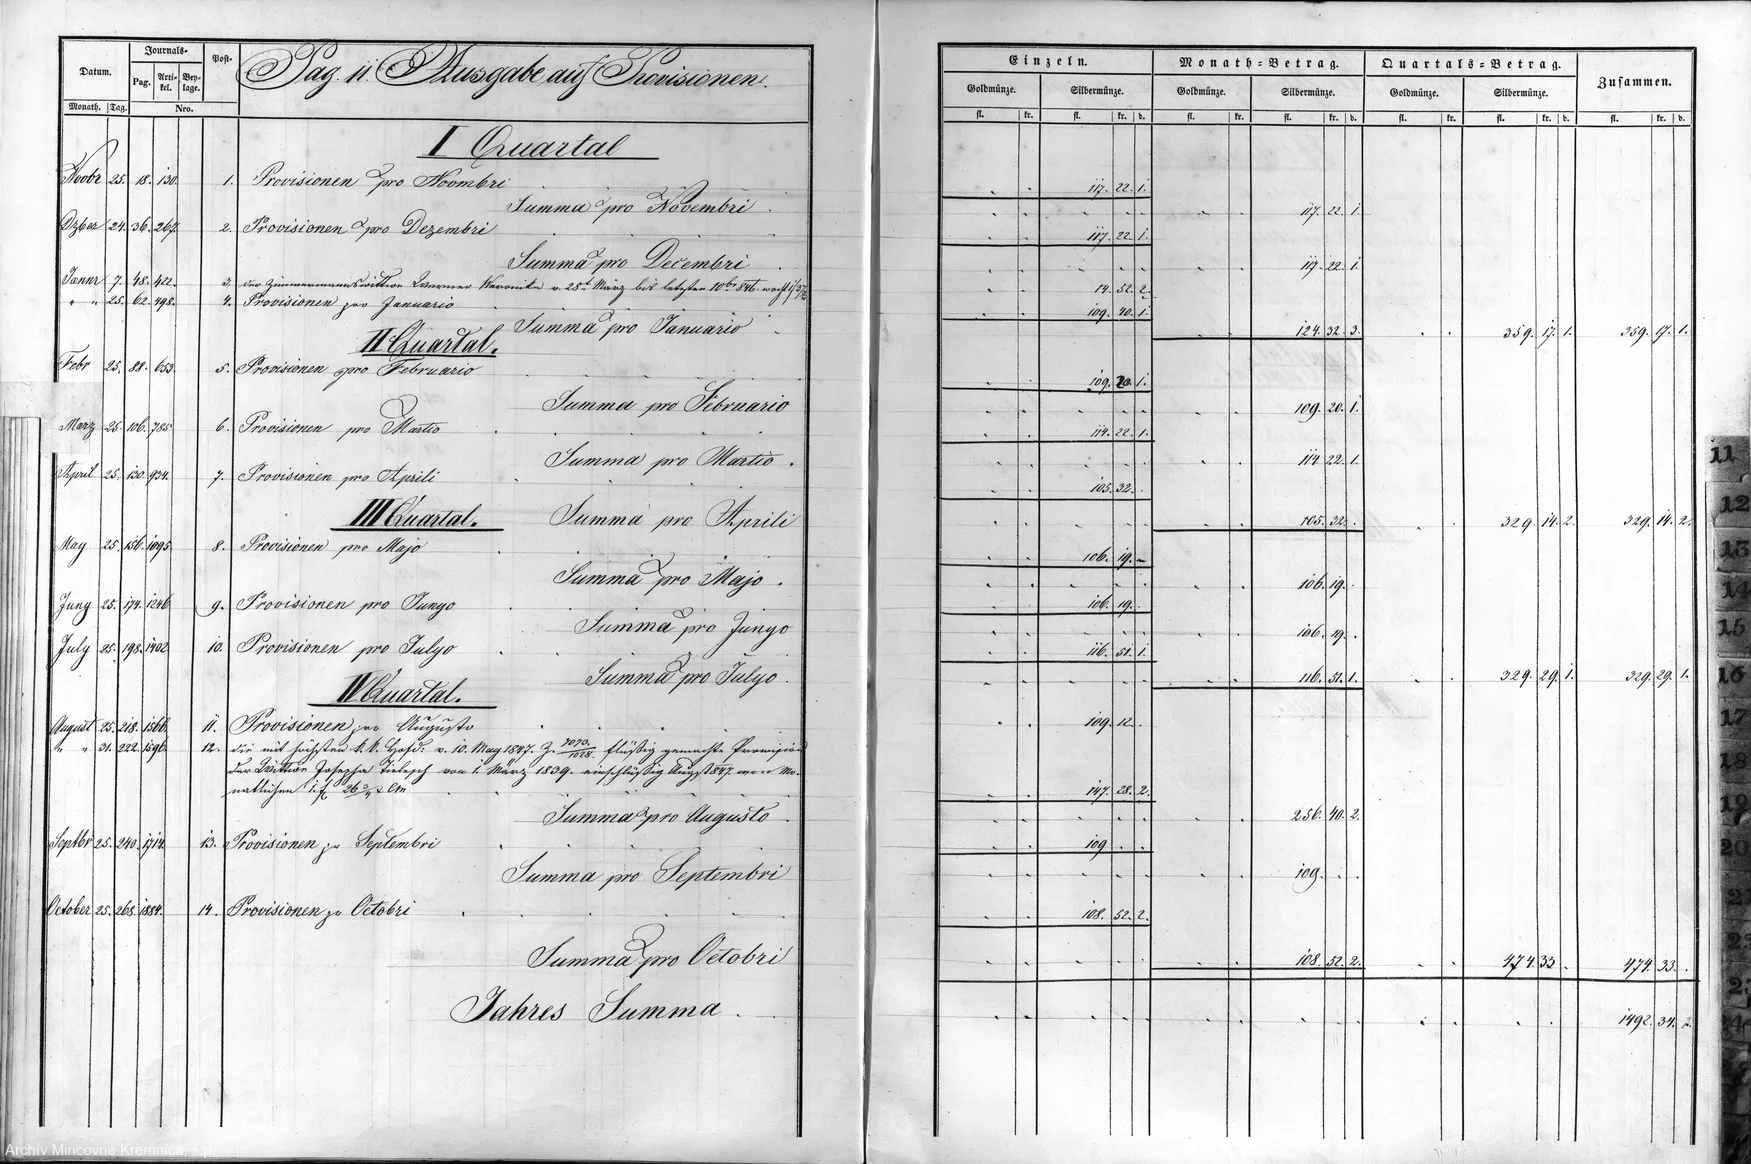 Datum. Journals- Post-
Pag. Arti-kel. Bey-lage.
Monath. Tag. Nro.
Pag. 11. Ausgabe auf Provisionen.
Einzeln. Monath-Betrag. Quartals-Betrag. Zusammen.
Goldmünze. Silbermünze. Goldmünze. Silbermünze. Goldmünze. Silbermünze.
fl. kr. fl. kr. d. fl. kr. fl. kr. d. fl. kr. fl. kr. d. fl. kr. d.
I Quartal
Novbr 25. 18. 130. 1. Provisionen pro Novmbri 117. 22. 1.
Summa pro Novembri 117. 22. 1.
Dzber 24. 36. 267. 2. Provisionen pro Dezembri 117. 22. 1.
Summa pro Decembri 117. 22. 1.
Jannr 7. 48. 422. 3. der Zimmermannswittwe Werner Veronika v. 28t März bis letzten 10br 846. 14. 52. 2.
" " 25. 62. 498. 4. Provisionen pro Januario 109. 40. 1.
Summa pro Januario 124. 32. 3. 359. 17. 1. 359. 17. 1.
II Quartal.
Febr 25. 88. 653. 5. Provisionen pro Februario 109. 20. 1.
Summa pro Februario 109. 20. 1.
Marz 25. 106. 785. 6. Provisionen pro Martio 114. 22. 1.
Summa pro Martio. 114. 22. 1.
April 25. 130. 934. 7. Provisionen pro Aprili 105. 32.
III Quartal. Summa pro Aprili 105. 32. 329. 14. 2. 329. 14. 2.
May 25. 156. 1095. 8. Provisionen pro Majo 106. 19. -
Summa pro Majo. 106. 19.
Juny 25. 174. 1246 9. Provisionen pro Junyo 106. 19.
Summa pro Junyo 106. 19.
July 25. 198. 1402 10. Provisionen pro Julyo 116. 51. 1.
Summa pro Julyo. 116. 51. 1. 329. 29. 1. 329. 29. 1.
IV Quartal.
August 25. 218. 1566. 11. Provisionen pro Augusto 109. 12.
" " 31. 222. 1596. 12. die mit höchsten k. k. Hofd. v. 10. May 1847. Z. 7073/1028. flüßig gemachte Provision
der Wittwe Josepha von 1. März 1839. einschlüßig Augst 847. Mo-
natlichen 147. 28. 2.
Summa pro Augusto. 256. 40. 2.
Septbr 25. 240. 1714. 13. Provisionen pr Septembri 109
Summa pro Septembri 109.
October 25. 268. 1884. 14. Provisionen pr Octobri 108. 52. 2.
Summa pro Octobri 108. 52. 2. 474. 33 474. 33.
Jahres Summa 1492. 34.
11
12
13
14
15
16
17
18
19
20
Archív Mincovne Kremnica, š.p.